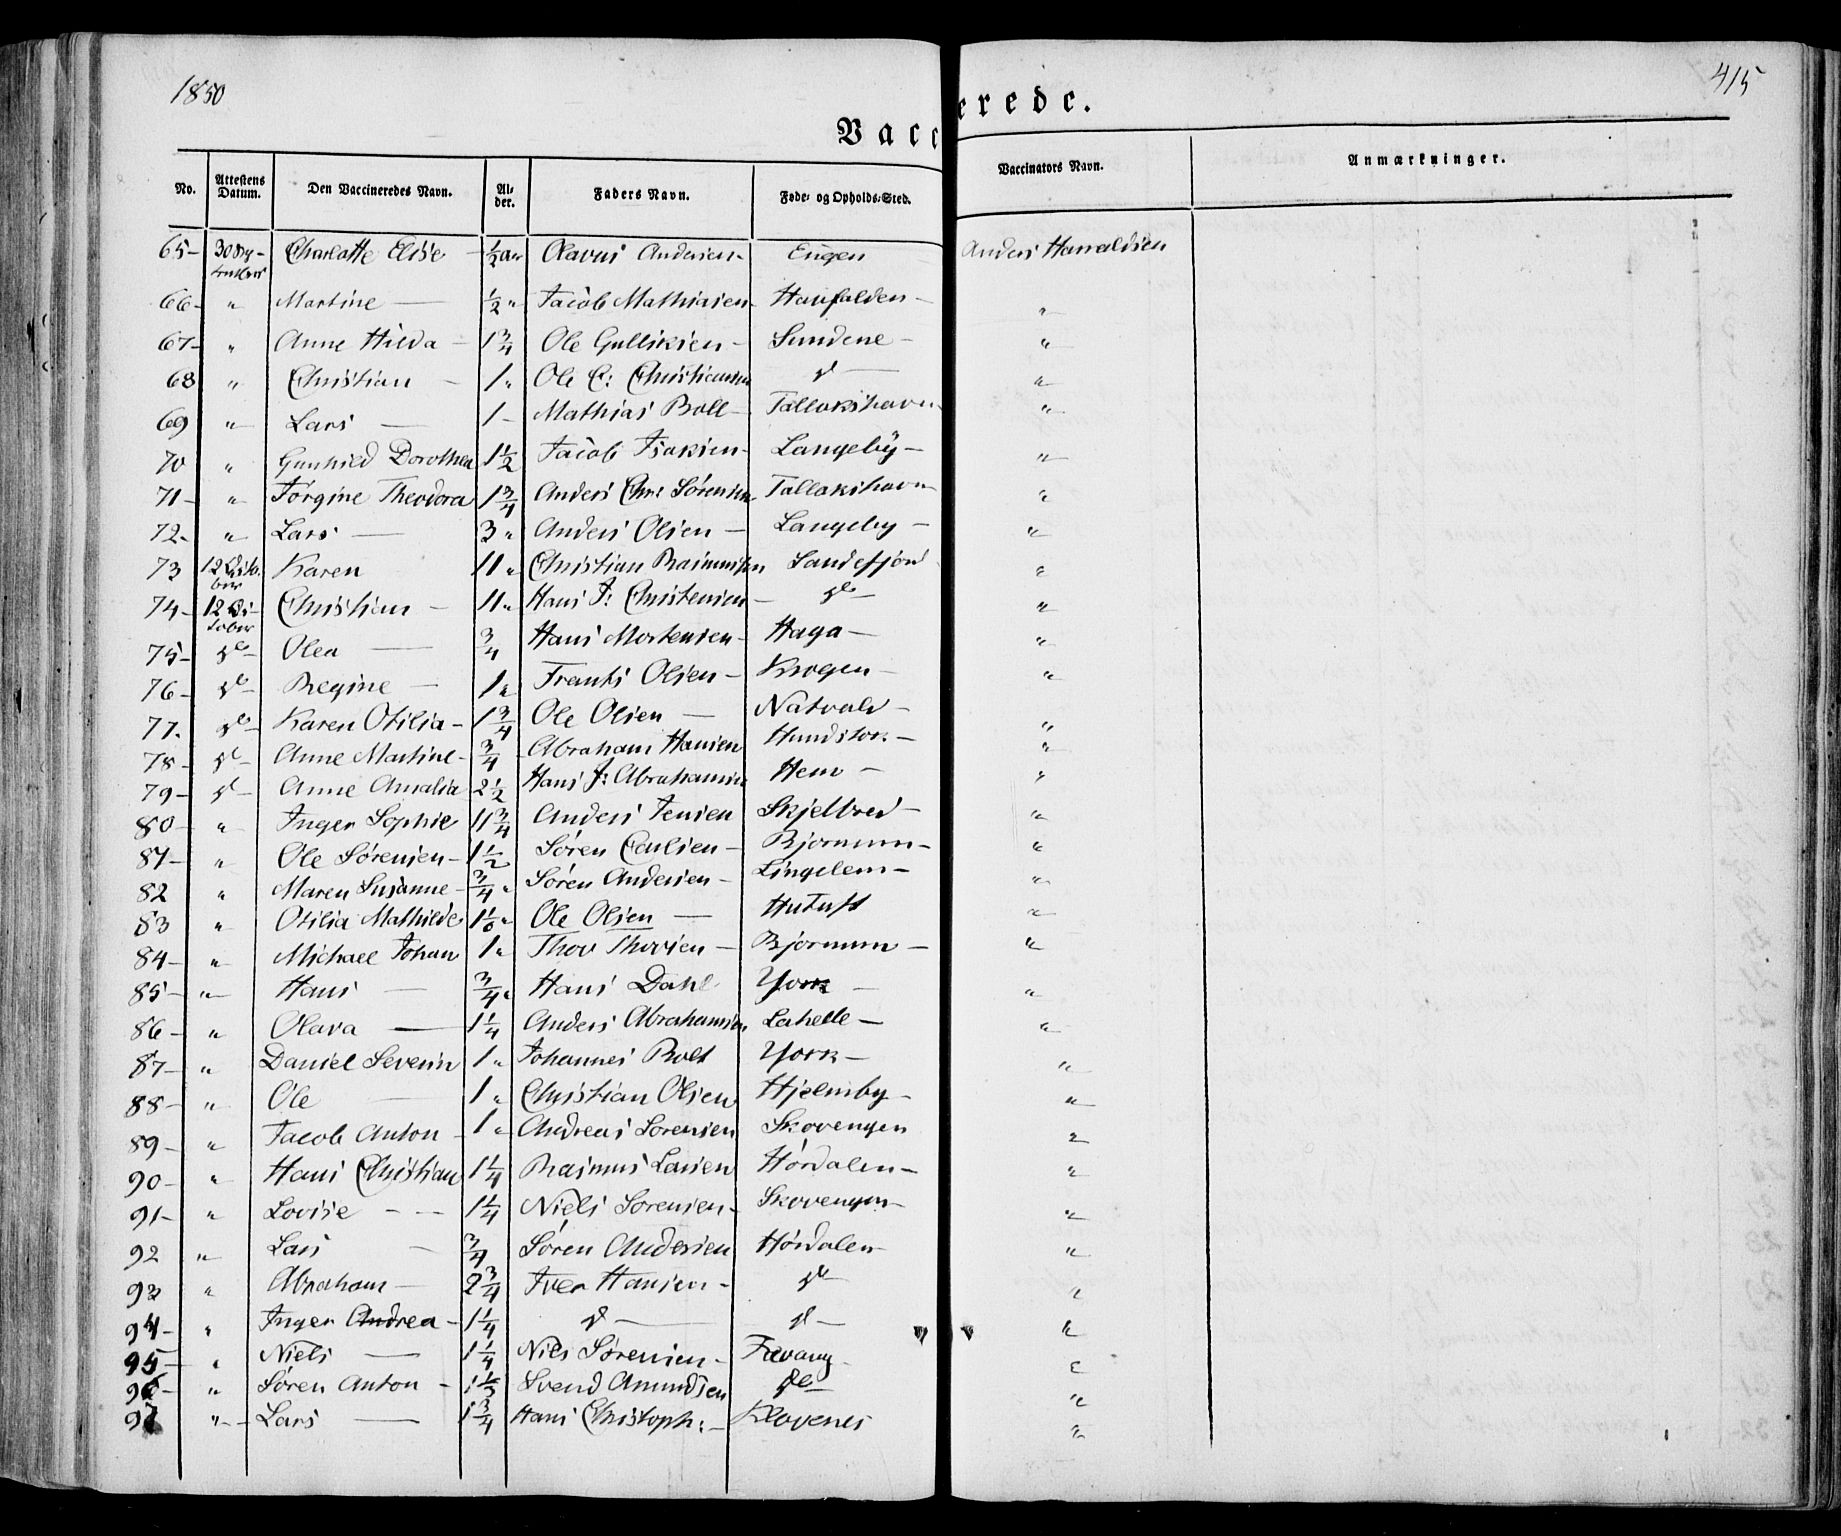 1850
415
Vaccinerede.
No. Attestens Datum. Den Vaccineredes Navn. Alder. Faders Navn. Føde- og Opholds-Sted. Vaccinators Navn. Anmærkninger.
65- 30 Charlotte Elise - 1/2 aar Olavus Andersen- Engen Anders Harraldsen
66- " Martine — 1/2 " Jacob Mathiasen- "
67- " Anne Hilda - 1 3/4 Ole Gulliksen- Sundene - "
68 " Christian - 1 " Ole C: Christiansen do — "
69 " Lars — 1 - Mathias Boll- Tallakshavn "
70 " Gunhild Dorothea 1 1/2 Jacob Isaksen- Langeby- "
71- " Torgine Theodora 1 3/4 Anders Chr: Sørensen Tallakshavn "
72- " Lars — 3 " Anders Olsen - Langeby - "
73 12 Octo- ber Karen 11 " Christian Rasmussen Sandefjord "
74- 12 Oc- tober Christian - 11 " Hans J: Christensen- do - "
75- do- Olea — 3/4 Hans Mortensen- Haga - "
76- do- Regine - 1 " Frants Olsen- Krogen- "
77. do- Karen Otilia- 1 3/4 Ole Olsen — Natvald- "
78- do- Anne Martine- 3/4 Abraham Hansen - "
79- do- Anne Amalia 2 1/2 Hans J: Abrahamsen Hem - "
80- " Inger Sophie 11 3/4 Anders Jensen Skjelbred- "
81- " Ole Sørensen- 1 1/2 Søren - Bjornum- "
82 " Maren Susanne- 3/4 " Søren Andersen- Lingelem- "
83 " Otilia Mathilde Ole Olsen — "
84- " Michael Johan 1 " Thor Thorsen- Bjornum- "
85- " Hans — 3/4 " Hans Dahl York - "
86- " Olava — 1 1/4 Anders Abrahamsen Lahelle- "
87- " Daniel Severin 1 " Johannes York- "
88- " Ole — 1 " Christian Olsen Hjelmby- "
89- " Jacob Anton - 1 " Andreas Sorensen Skovengen "
90- " Hans Christian 1 1/4 Rasmus Larsen Hørdalen- "
91- " Lovise - - 1 1/4 Niels Sorensen- Skovengen- "
92 " Lars - 3/4 Søren Andersen Hørdalen- "
93 " Abraham- 2 3/4 Iver Hansen- do- "
94- " Inger Andrea- 1 1/4 do — do - "
95- " Niels — 1 1/4 Nils Sørensen- "
96- " Søren Anton - Svend Amundsen do "
97 " - Lars — 1 3/4 Hans Christoph:- Klovenes "